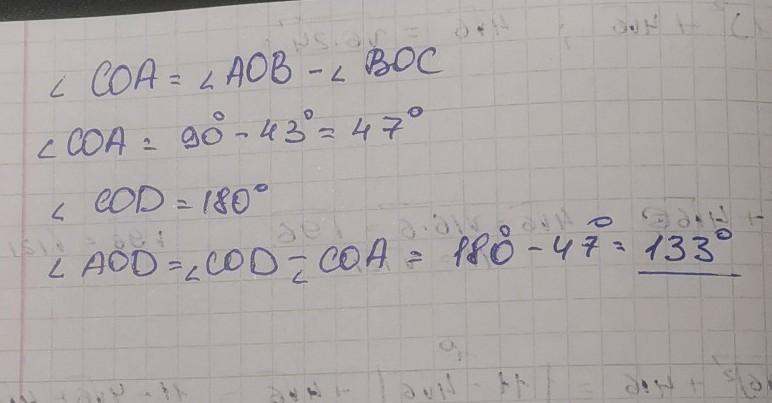 ∠ COA = ∠ AOB - ∠ BOC
∠ COA = 90° - 43° = 47°
∠ COD = 180°
∠ AOD = ∠ COD - ∠ COA = 180° - 47° = 133°